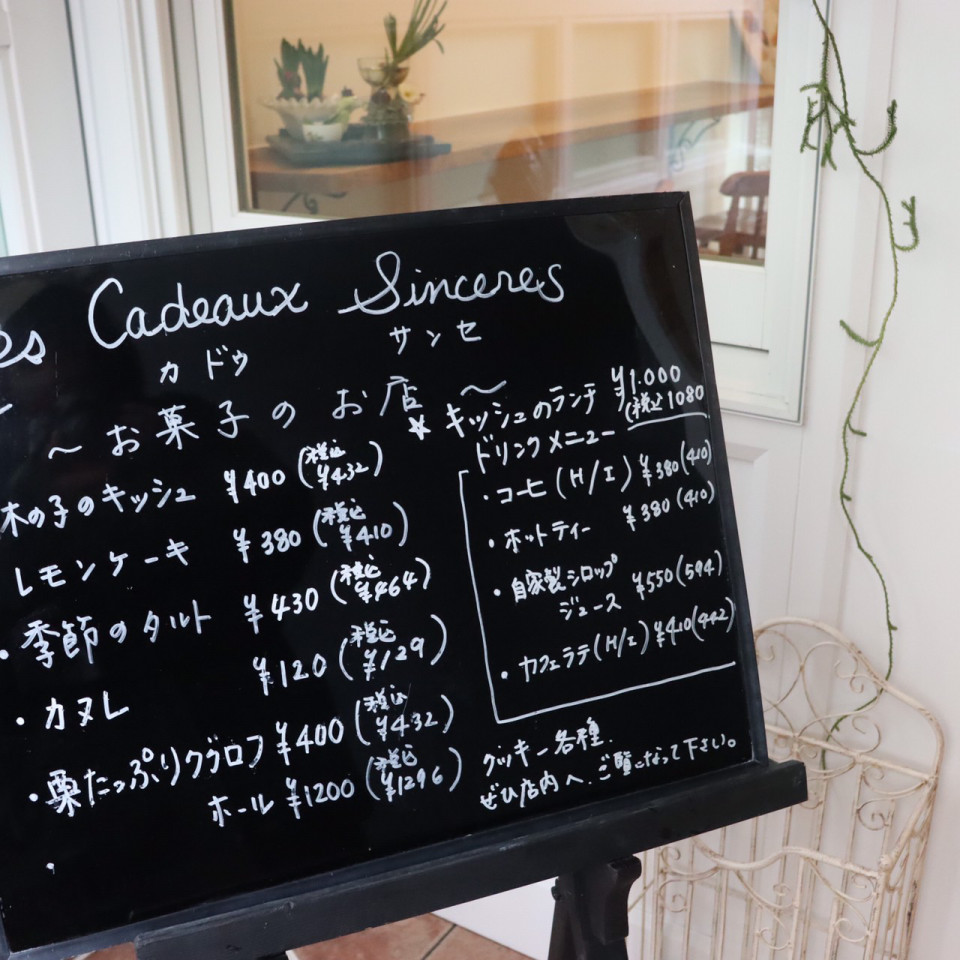 es Cadeaux Sinceres
カドゥ サンセ
～お菓子のお店～
木の子のキッシュ ¥400 (税込 ¥432)
レモンケーキ ¥380 (税込 ¥410)
・季節のタルト ¥430 (税込 ¥464)
・カヌレ ¥120 (税込 ¥129)
・栗たっぷりクグロフ ¥400 (税込 ¥432)
ホール ¥1200 (税込 ¥1296)
★キッシュのランチ ¥1.000
(税込 1080
ドリンクメニュー
・コーヒ (H/I) ¥380 (410)
・ホットティー ¥380 (410)
・自家製シロップ
ジュース ¥550 (594)
・カフェラテ (H/I) ¥410 (442)
クッキー各種.
ぜひ店内へ.ご覧になって下さい。